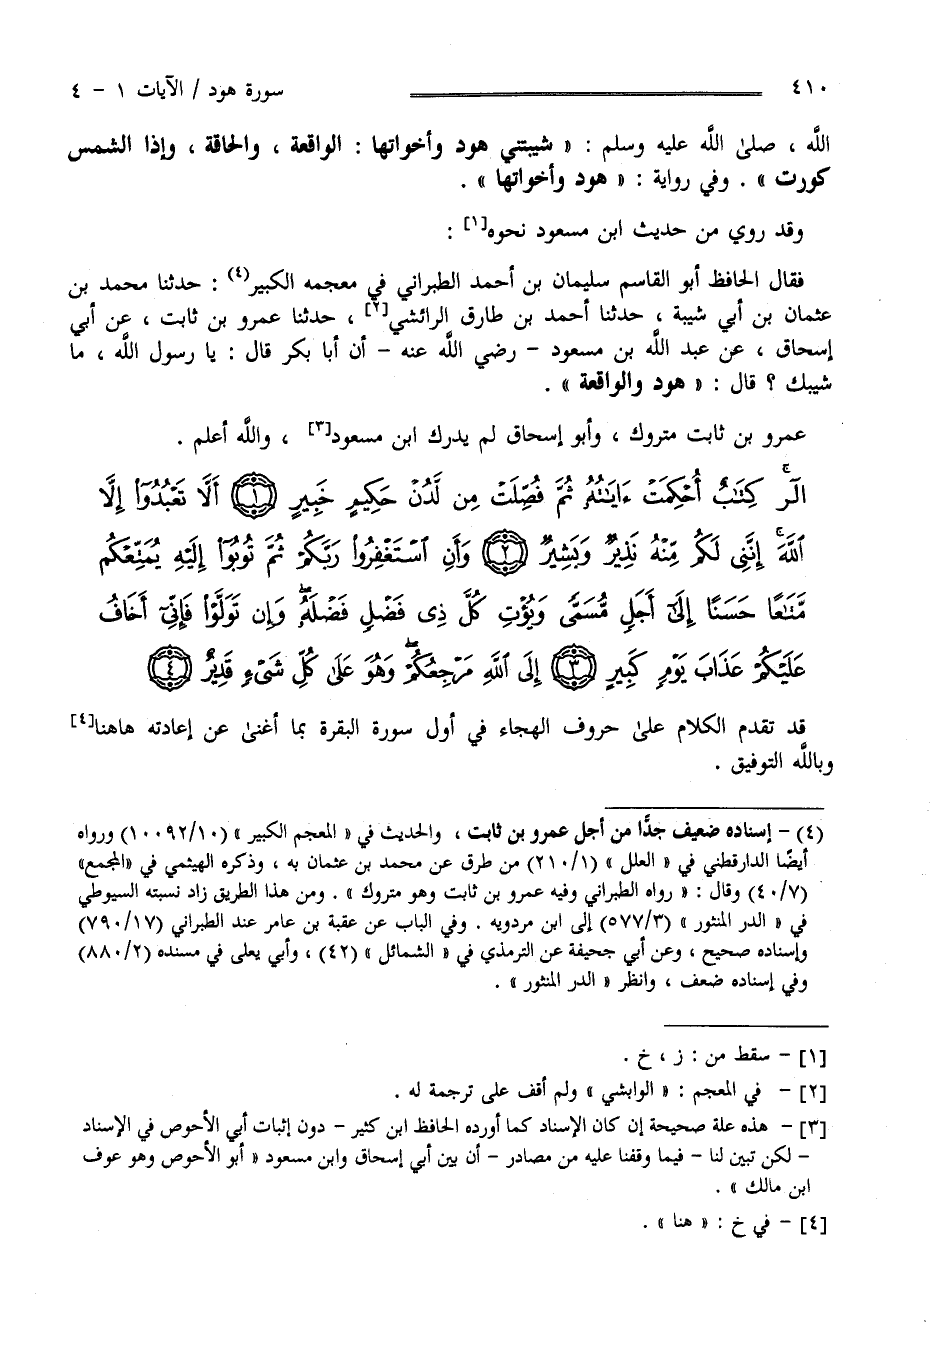 ٤١٠ سورة هود / الآيات ١ - ٤
اللَّه ، صلىٰ اللَّه عليه وسلم : « شيبتني هود وأخواتها : الواقعة ، والحاقة ، وإذا الشمس
كورت » . وفي رواية : « هود وأخواتها » .
وقد روي من حديث ابن مسعود نحوه[١] :
فقال الحافظ أبو القاسم سليمان بن أحمد الطبراني في معجمه الكبير(٤) : حدثنا محمد بن
عثمان بن أبي شيبة ، حدثنا أحمد بن طارق الرائشي[٢] ، حدثنا عمرو بن ثابت ، عن أبي
إسحاق ، عن عبد اللَّه بن مسعود - رضي اللَّه عنه - أن أبا بكر قال : يا رسول اللَّه ، ما
شيبك ؟ قال : « هود والواقعة » .
عمرو بن ثابت متروك ، وأبو إسحاق لم يدرك ابن مسعود[٣] ، واللَّه أعلم .
الٓرۚ كِتَٰبٌ أُحۡكِمَتۡ ءَايَٰتُهُۥ ثُمَّ فُصِّلَتۡ مِن لَّدُنۡ حَكِيمٍ خَبِيرٍ ١ أَلَّا تَعۡبُدُوٓاْ إِلَّا
ٱللَّهَۚ إِنَّنِي لَكُم مِّنۡهُ نَذِيرٞ وَبَشِيرٞ ٢ وَأَنِ ٱسۡتَغۡفِرُواْ رَبَّكُمۡ ثُمَّ تُوبُوٓاْ إِلَيۡهِ يُمَتِّعۡكُم
مَّتَٰعًا حَسَنًا إِلَىٰٓ أَجَلٖ مُّسَمّٗى وَيُؤۡتِ كُلَّ ذِي فَضۡلٖ فَضۡلَهُۥۖ وَإِن تَوَلَّوۡاْ فَإِنِّيٓ أَخَافُ
عَلَيۡكُمۡ عَذَابَ يَوۡمٖ كَبِيرٍ ٣ إِلَى ٱللَّهِ مَرۡجِعُكُمۡۖ وَهُوَ عَلَىٰ كُلِّ شَيۡءٖ قَدِيرٌ ٤
قد تقدم الكلام علىٰ حروف الهجاء في أول سورة البقرة بما أغنىٰ عن إعادته هاهنا[٤]
وباللَّه التوفيق .
(٤) - إسناده ضعيف جدًّا من أجل عمرو بن ثابت ، والحديث في « المعجم الكبير » (١٠٠٩٢/١٠) ورواه
أيضًا الدارقطني في « العلل » (٢١٠/١) من طرق عن محمد بن عثمان به ، وذكره الهيثمي في «المجمع»
(٤٠/٧) وقال : « رواه الطبراني وفيه عمرو بن ثابت وهو متروك » . ومن هذا الطريق زاد نسبته السيوطي
في « الدر المنثور » (٥٧٧/٣) إلى ابن مردويه . وفي الباب عن عقبة بن عامر عند الطبراني (٧٩٠/١٧)
وإسناده صحيح ، وعن أبي جحيفة عن الترمذي في « الشمائل » (٤٢) ، وأبي يعلى في مسنده (٨٨٠/٢)
وفي إسناده ضعف ، وانظر « الدر المنثور » .
[١] - سقط من : ز ، خ .
[٢] - في المعجم : « الوابشي » ولم أقف على ترجمة له .
[٣] - هذه علة صحيحة إن كان الإسناد كما أورده الحافظ ابن كثير - دون إثبات أبي الأحوص في الإسناد
- لكن تبين لنا - فيما وقفنا عليه من مصادر - أن بين أبي إسحاق وابن مسعود « أبو الأحوص وهو عوف
ابن مالك » .
[٤] - في خ : « هنا » .